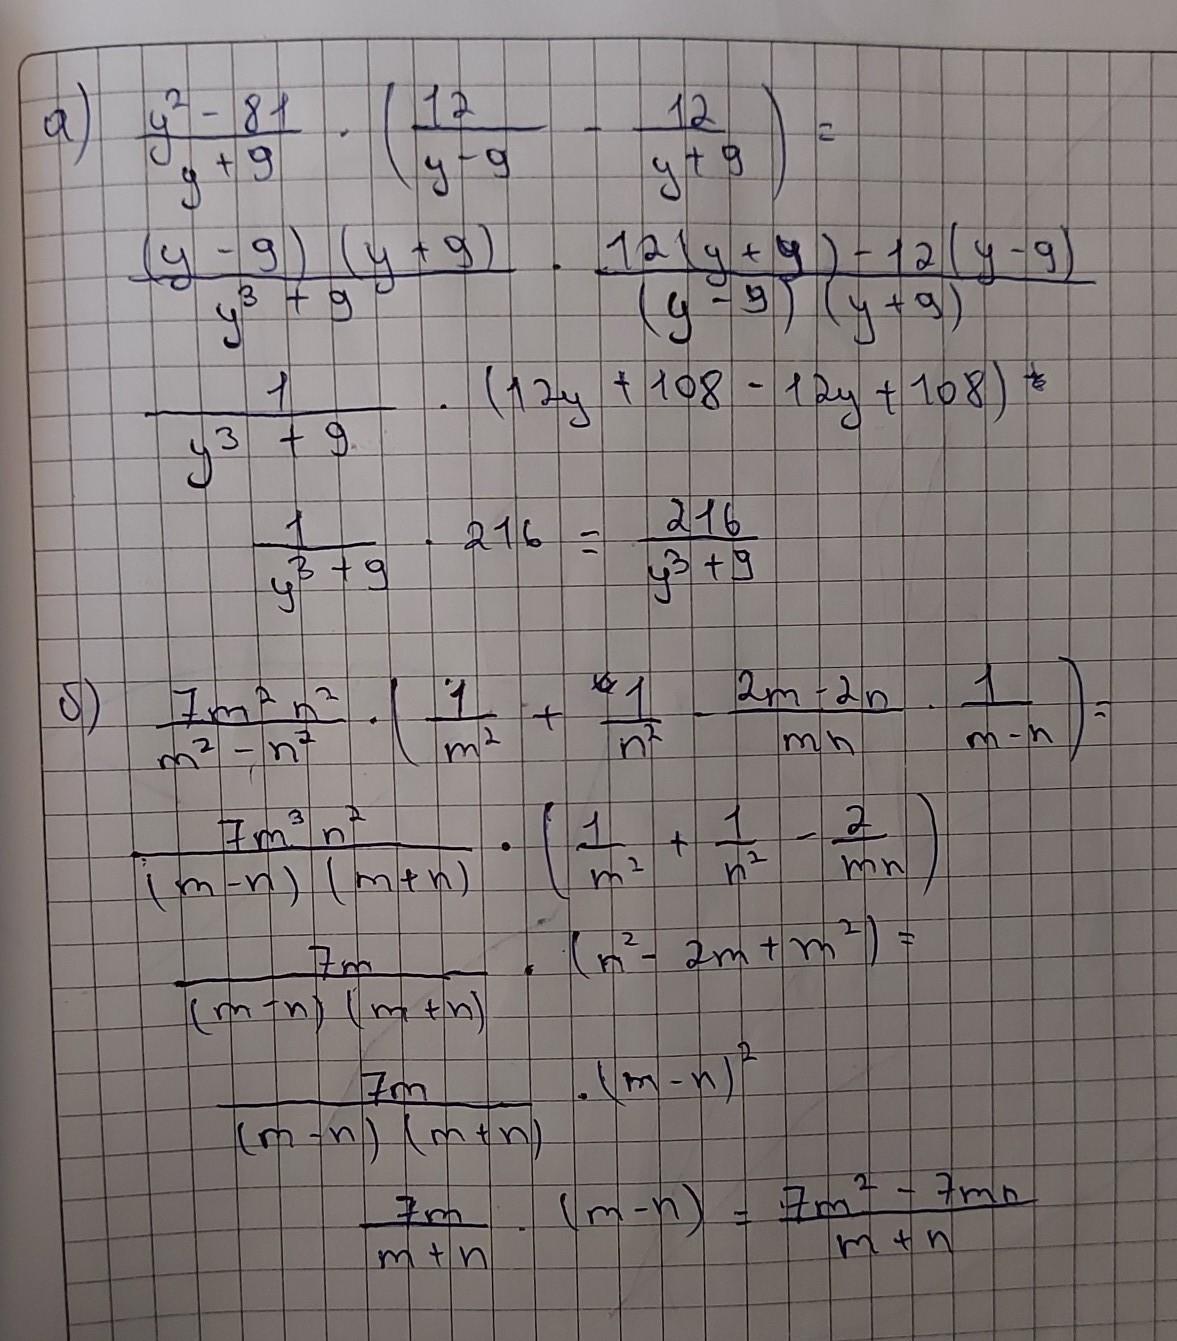 а) (y² - 81)/(y + 9) · (12/(y - 9) - 12/(y + 9)) =
((y - 9) (y + 9))/(y³ + 9) · (12(y + 9) - 12(y - 9))/((y - 9) (y + 9))
1/(y³ + 9) · (12y + 108 - 12y + 108)
1/(y³ + 9) · 216 = 216/(y³ + 9)
б) (7m² n²)/(m² - n²) · (1/m² + 1/n² - (2m - 2n)/(mn) · 1/(m - n)) =
(7m³ n²)/((m - n) (m + n)) · (1/m² + 1/n² - 2/(mn))
7m/((m - n) (m + n)) · (n² - 2m + m²) =
7m/((m - n) (m + n)) · (m - n)²
7m/(m + n) · (m - n) = (7m² - 7mn)/(m + n)